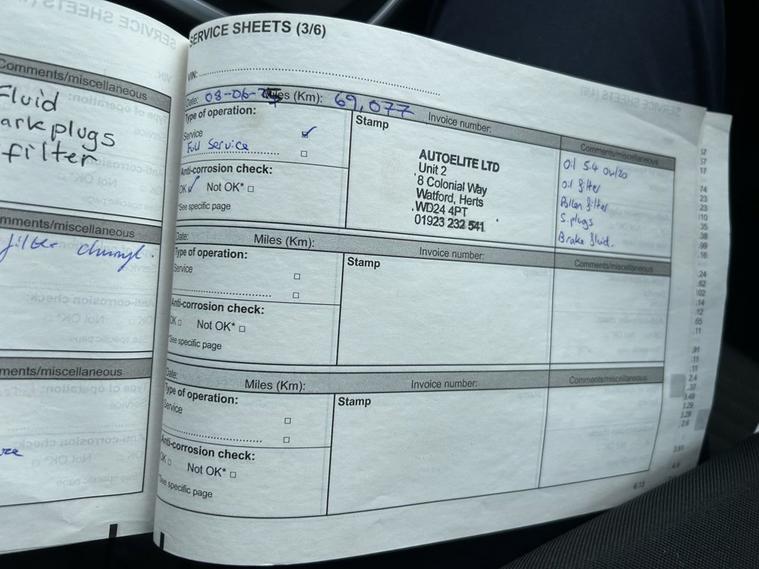 Comments/miscellaneous
Fluid
ark plugs
filter
mments/miscellaneous
filter
mments/miscellaneous
SERVICE SHEETS (3/6)
VIN:
Date: 03-06- Miles (Km): 69,077 Invoice number:
Comments/miscellaneous
Type of operation:
Service
Full Service
Anti-corrosion check:
OK Not OK*
*See specific page
Stamp
AUTOELITE LTD
Unit 2
8 Colonial Way
Watford, Herts
WD24 4PT
01923 232 541
Oil 5.4
Oil filter
Pollen filter
S. plugs
Brake fluid.
Date: Miles (Km): Invoice number:
Comments/miscellaneous
Type of operation:
Service
Anti-corrosion check:
OK Not OK*
*See specific page
Stamp
Date: Miles (Km): Invoice number:
Comments/miscellaneous
Type of operation:
Service
Anti-corrosion check:
OK Not OK*
*See specific page
Stamp